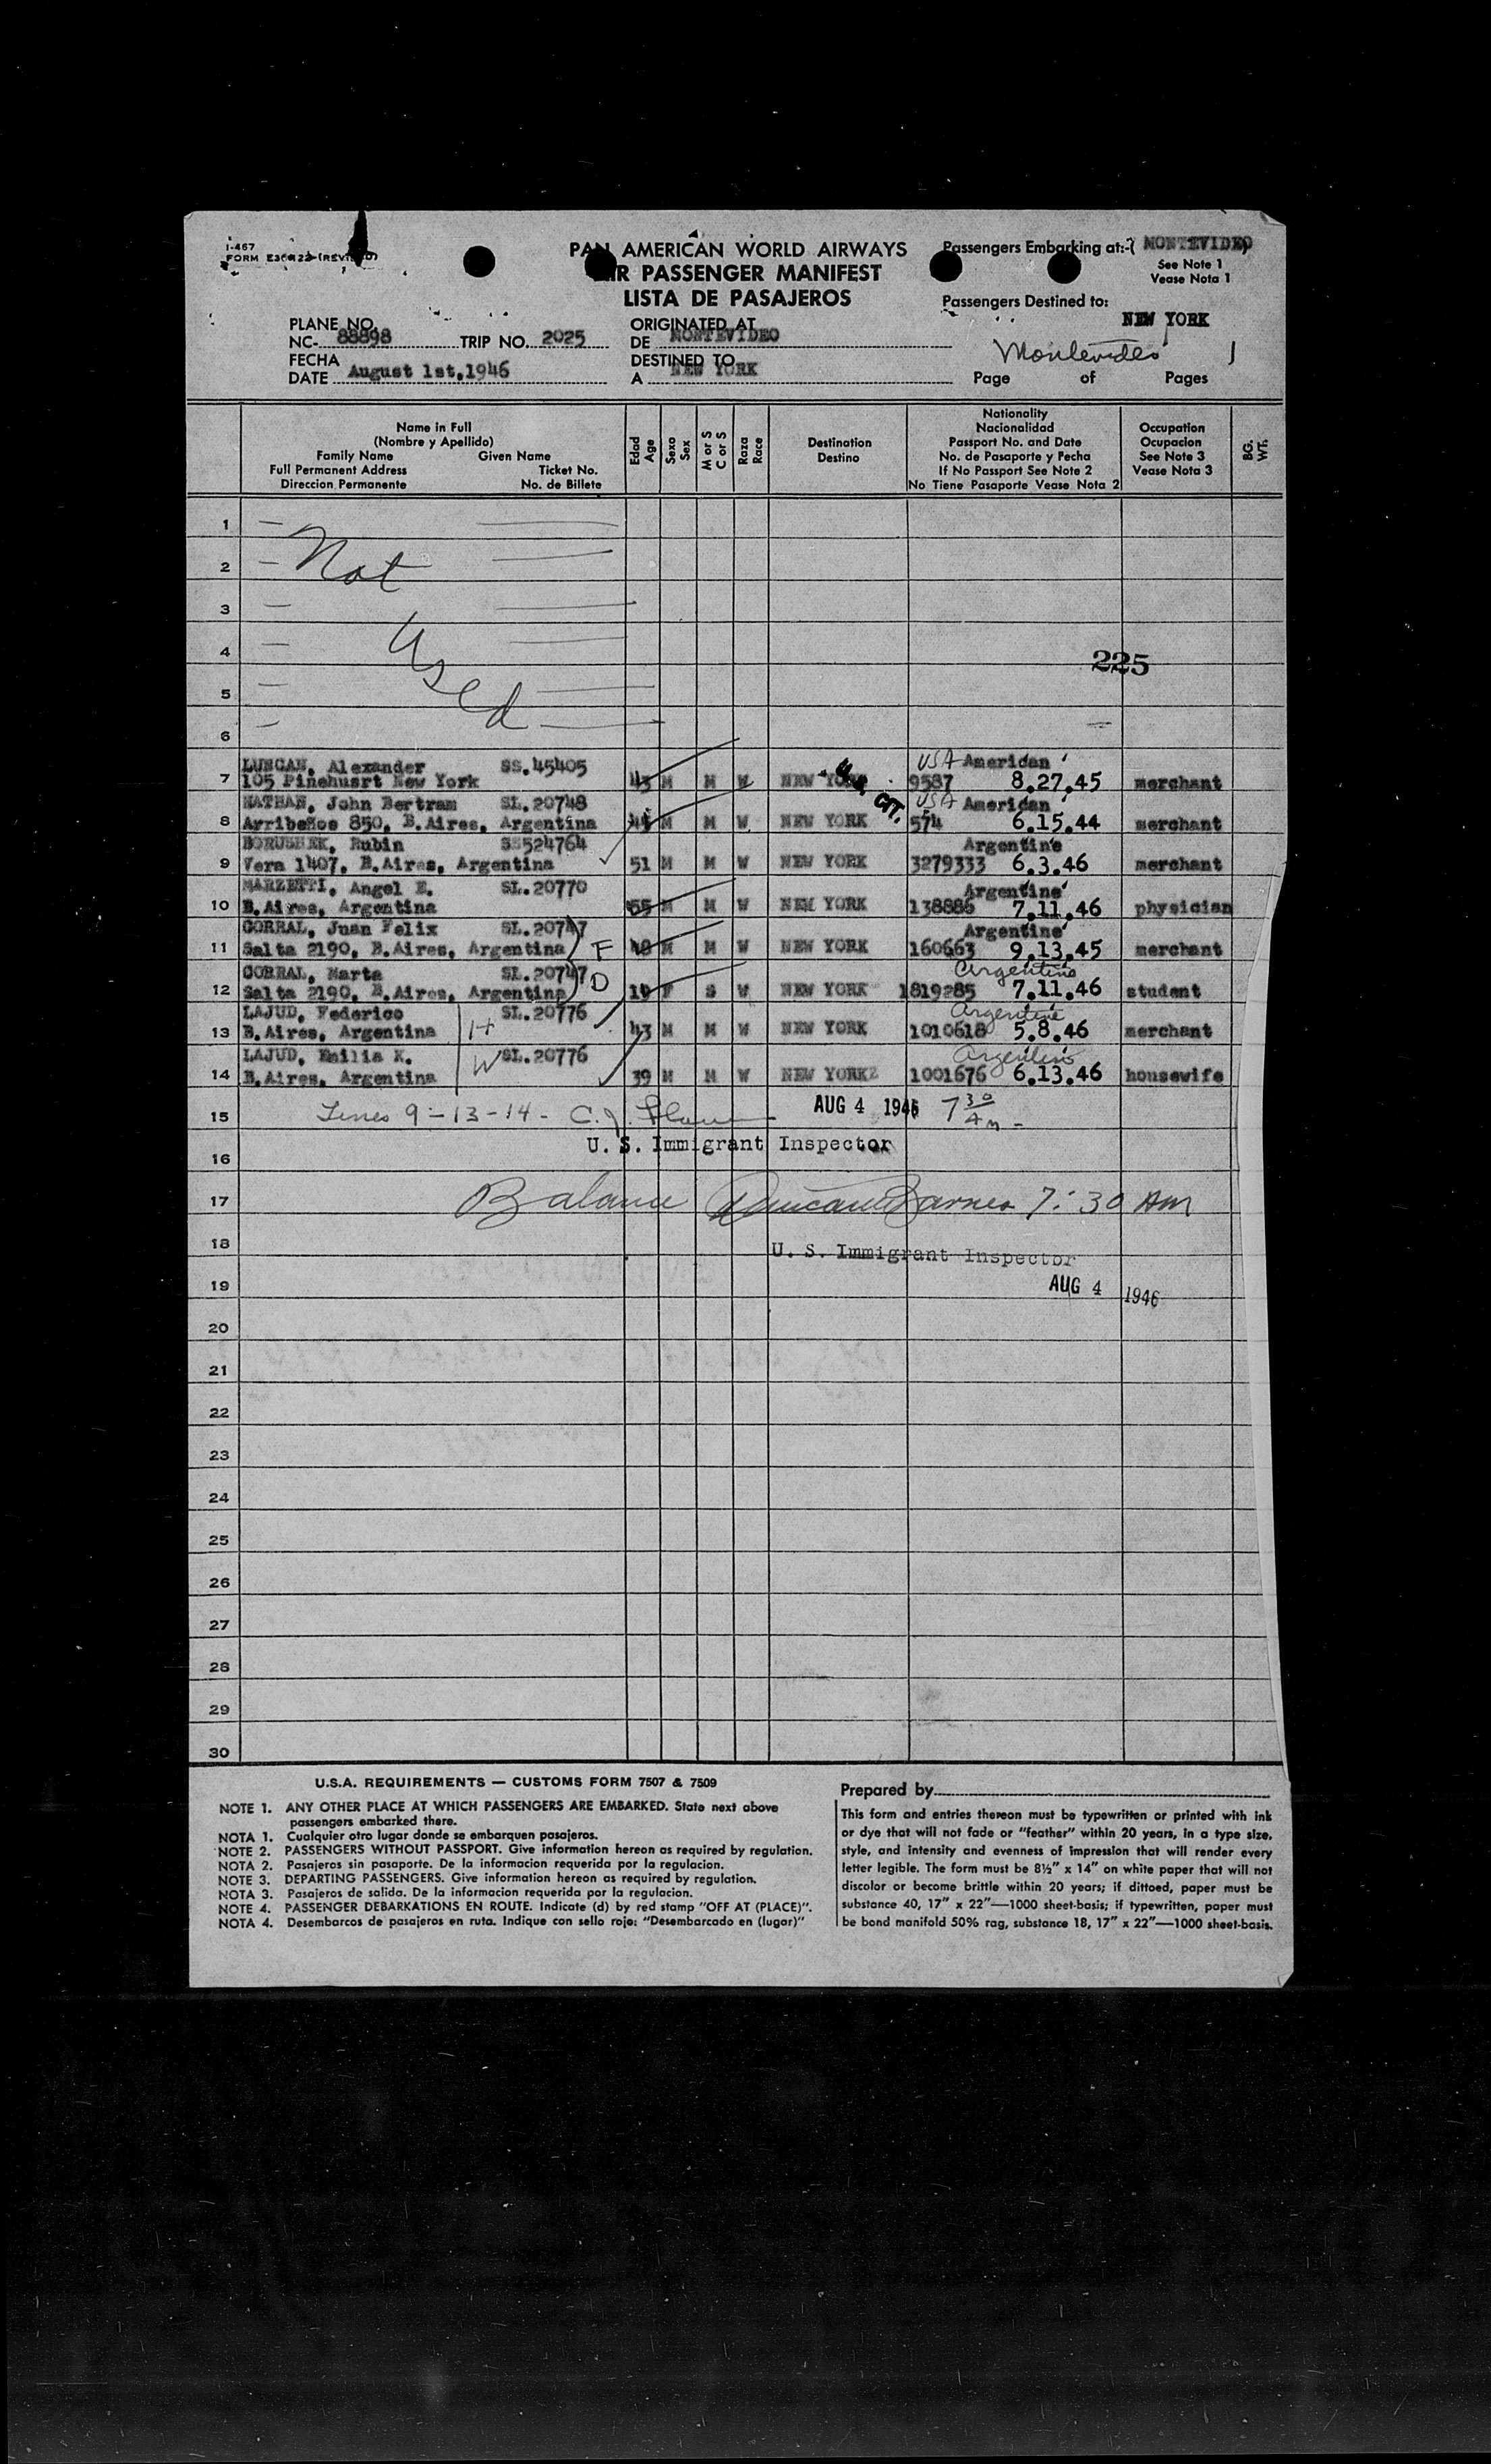 I-467
FORM E30R22 (REVISED)
PAN AMERICAN WORLD AIRWAYS
AIR PASSENGER MANIFEST
LISTA DE PASAJEROS
Passengers Embarking at:-( MONTEVIDEO
See Note 1
Vease Nota 1
Passengers Destined to:
NEW YORK
PLANE NO.
NC- 88898 TRIP NO. 2025
ORIGINATED AT
DE MONTEVIDEO
FECHA
DATE August 1st,1946
DESTINED TO
A NEW YORK
Montevideo 1
Page of Pages
Name in Full
(Nombre y Apellido)
Family Name Given Name
Full Permanent Address Ticket No.
Direccion Permanente No. de Billete
Edad
Age
Sexo
Sex
M or S
C or S
Raza
Race
Destination
Destino
Nationality
Nacionalidad
Passport No. and Date
No. de Pasaporte y Fecha
If No Passport See Note 2
No Tiene Pasaporte Vease Nota 2
Occupation
Ocupacion
See Note 3
Vease Nota 3
BG.
WT.
1
2 Not
3
4 Used
225
5
6
Alexander SS.45405 USA American
7 105 Pinehusrt New York 43 M M W NEW YORK U.S. CIT. 9587 8.27.45 merchant
NATHAN, John Bertram SL.20748 USA American
8 Arribeños 850, B.Aires, Argentina M M W NEW YORK 574 6.15.44 merchant
Rubin SS524764 Argentine
9 Vera 1407, B.Aires, Argentina 51 M M W NEW YORK 3279333 6.3.46 merchant
MARZETTI, Angel E. SL.20770 Argentine
10 B.Aires, Argentina 55 M M W NEW YORK 138886 7.11.46 physician
CORRAL, Juan Felix SL.20747 Argentine
11 Salta 2190, B.Aires, Argentina F 48 M M W NEW YORK 160663 9.13.45 merchant
CORRAL, Marta SL.20747 Argentine
12 Salta 2190, B.Aires, Argentina D 19 F S W NEW YORK 1819285 7.11.46 student
LAJUD, Federico SL.20776 Argentine
13 B.Aires, Argentina H 43 M M W NEW YORK 1010618 5.8.46 merchant
LAJUD, Emilia K. SL.20776 Argentine
14 B.Aires, Argentina W 39 M M W NEW YORK 1001676 6.13.46 housewife
15 Lines 9-13-14- C.J. AUG 4 1946 7 30 AM
16 U. S. Immigrant Inspector
17 Balance Duncan Barnes 7:30 AM
18 U. S. Immigrant Inspector
19 AUG 4 1946
20
21
22
23
24
25
26
27
28
29
30
U.S.A. REQUIREMENTS — CUSTOMS FORM 7507 & 7509
NOTE 1. ANY OTHER PLACE AT WHICH PASSENGERS ARE EMBARKED. State next above
passengers embarked there.
NOTA 1. Cualquier otro lugar donde se embarquen pasajeros.
NOTE 2. PASSENGERS WITHOUT PASSPORT. Give information hereon as required by regulation.
NOTA 2. Pasajeros sin pasaporte. De la informacion requerida por la regulacion.
NOTE 3. DEPARTING PASSENGERS. Give information hereon as required by regulation.
NOTA 3. Pasajeros de salida. De la informacion requerida por la regulacion.
NOTE 4. PASSENGER DEBARKATIONS EN ROUTE. Indicate (d) by red stamp "OFF AT (PLACE)".
NOTA 4. Desembarcos de pasajeros en ruta. Indique con sello rojo: "Desembarcado en (lugar)"
Prepared by
This form and entries thereon must be typewritten or printed with ink
or dye that will not fade or "feather" within 20 years, in a type size,
style, and intensity and evenness of impression that will render every
letter legible. The form must be 8½" x 14" on white paper that will not
discolor or become brittle within 20 years; if dittoed, paper must be
substance 40, 17" x 22"—1000 sheet-basis; if typewritten, paper must
be bond manifold 50% rag, substance 18, 17" x 22"—1000 sheet-basis.